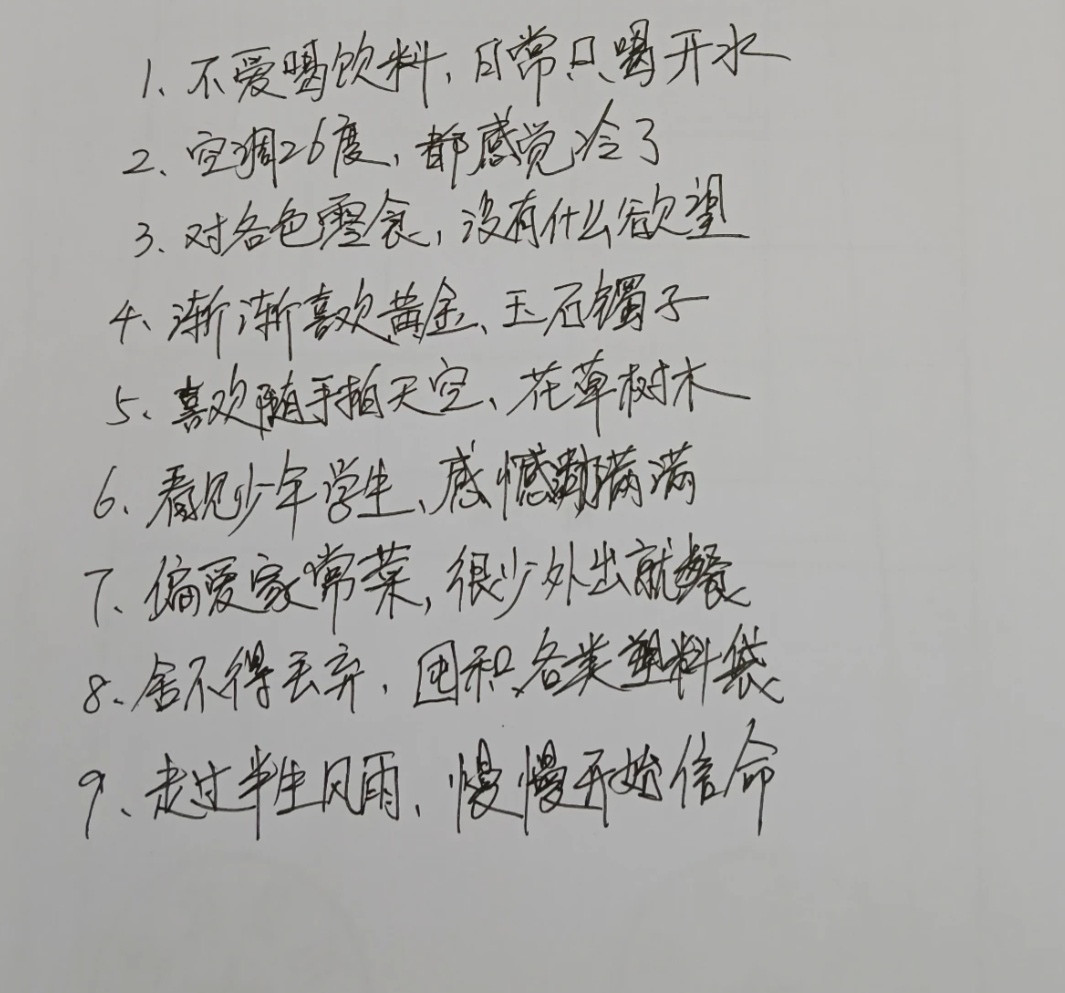 1、不爱喝饮料,日常只喝开水
2、空调26度、都感觉冷了
3、对各色零食,没有什么欲望
4、渐渐喜欢黄金、玉石镯子
5、喜欢随手拍天空、花草树木
6、看见少年学生、感憾满满
7、偏爱家常菜,很少外出就餐
8、舍不得丢弃、囤积各类塑料袋
9、走过半生风雨、慢慢开始信命